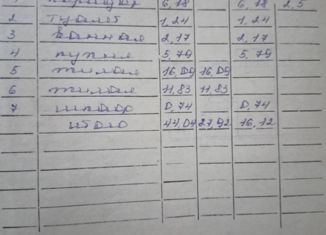 1 коридор 6,78 6,78 2,5
2 туалет 1,24 1,24
3 ванная 2,17 2,17
4 кухня 5,79 5,79
5 жилая 16,09 16,09
6 жилая 11,83 11,83
7 шкаф 0,74 0,74
итого 44,04 27,92 16,12